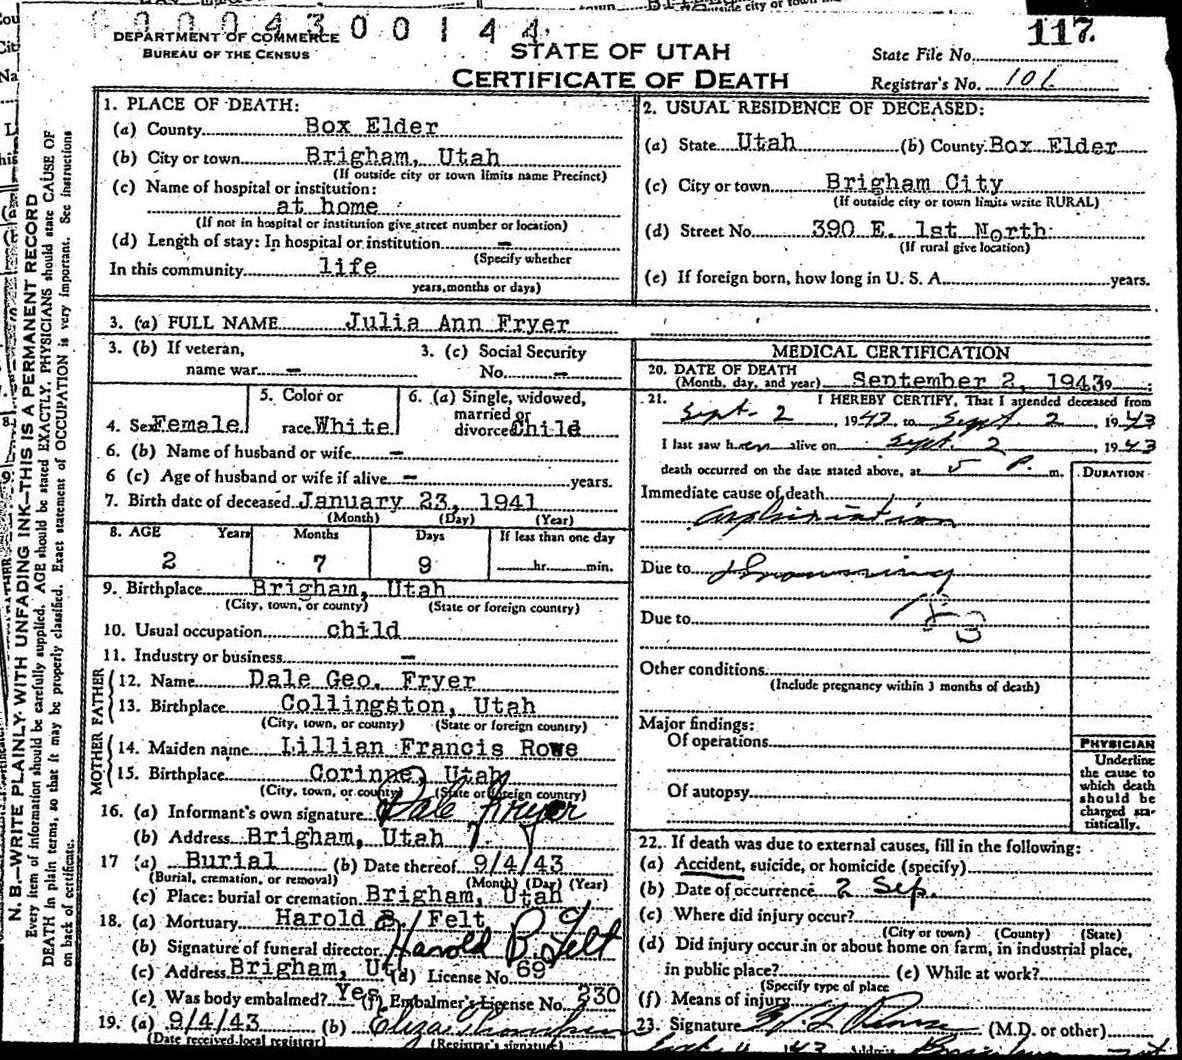 00004300144
117.
DEPARTMENT OF COMMERCE
BUREAU OF THE CENSUS
STATE OF UTAH
CERTIFICATE OF DEATH
State File No.
Registrar's No.
N. B.—WRITE PLAINLY, WITH UNFADING INK—THIS IS A PERMANENT RECORD
Every item of information should be carefully supplied. AGE should be stated EXACTLY. PHYSICIANS should state CAUSE OF
DEATH in plain terms, so that it may be properly classified. Exact statement of OCCUPATION is very important. See instructions
on back of certificate.
1. PLACE OF DEATH:
(a) County Box Elder
(b) City or town Brigham, Utah
(If outside city or town limits name Precinct)
(c) Name of hospital or institution:
at home
(If not in hospital or institution give street number or location)
(d) Length of stay: In hospital or institution –
(Specify whether
In this community life
years, months or days)
2. USUAL RESIDENCE OF DECEASED:
(a) State Utah (b) County Box Elder
(c) City or town Brigham City
(If outside city or town limits write RURAL)
(d) Street No. 390 E. 1st North
(If rural give location)
(e) If foreign born, how long in U. S. A. years.
3. (a) FULL NAME Julia Ann Fryer
3. (b) If veteran,
name war –
3. (c) Social Security
No. –
4. Sex Female
5. Color or
race White
6. (a) Single, widowed,
married or
divorced Child
6. (b) Name of husband or wife –
6 (c) Age of husband or wife if alive – years.
7. Birth date of deceased January 23, 1941
(Month) (Day) (Year)
8. AGE Years Months Days If less than one day
2 7 9 hr. min.
9. Birthplace Brigham, Utah
(City, town, or county) (State or foreign country)
10. Usual occupation child
11. Industry or business –
FATHER
12. Name Dale Geo. Fryer
13. Birthplace Collingston, Utah
(City, town, or county) (State or foreign country)
MOTHER
14. Maiden name Lillian Francis Rowe
15. Birthplace Corinne, Utah
(City, town, or county) (State or foreign country)
16. (a) Informant's own signature Dale Fryer
(b) Address Brigham, Utah
17 (a) Burial (b) Date thereof 9/4/43
(Burial, cremation, or removal) (Month) (Day) (Year)
(c) Place: burial or cremation Brigham, Utah
18. (a) Mortuary Harold B. Felt
(b) Signature of funeral director Harold B. Felt
(c) Address Brigham, Ut (d) License No. 69
(e) Was body embalmed? Yes (f) Embalmer's License No. 330
19. (a) 9/4/43 (b) Eliza
(Date received local registrar) (Registrar's signature)
MEDICAL CERTIFICATION
20. DATE OF DEATH
(Month, day, and year) September 2, 1943
21. I HEREBY CERTIFY, That I attended deceased from
Sept. 2 1943, to Sept. 2, 1943
I last saw her alive on Sept. 2, 1943
death occurred on the date stated above, at 5 P. m.
DURATION
Immediate cause of death
Asphixiation
Due to Drowning
Due to
Other conditions
(Include pregnancy within 3 months of death)
Major findings:
Of operations
Of autopsy
PHYSICIAN
Underline
the cause to
which death
should be
charged sta-
tistically.
22. If death was due to external causes, fill in the following:
(a) Accident, suicide, or homicide (specify)
(b) Date of occurrence 2 Sep.
(c) Where did injury occur?
(City or town) (County) (State)
(d) Did injury occur in or about home on farm, in industrial place,
in public place? (e) While at work?
(Specify type of place
(f) Means of injury
23. Signature (M.D. or other)